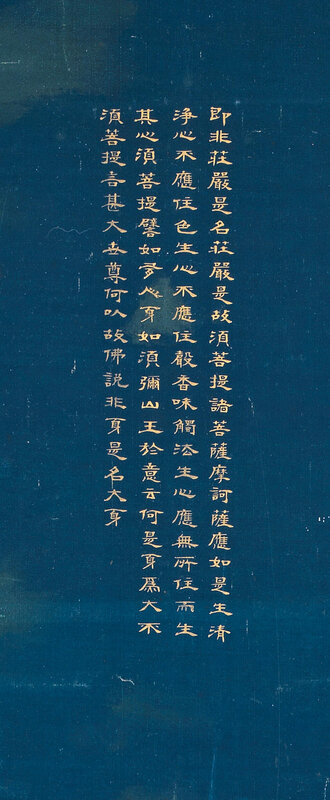 即非莊嚴是名莊嚴是故須菩提諸菩薩摩訶薩應如是生清
淨心不應住色生心不應住聲香味觸法生心應無所住而生
其心須菩提譬如有人身如須彌山王於意云何是身為大不
須菩提言甚大世尊何以故佛說非身是名大身